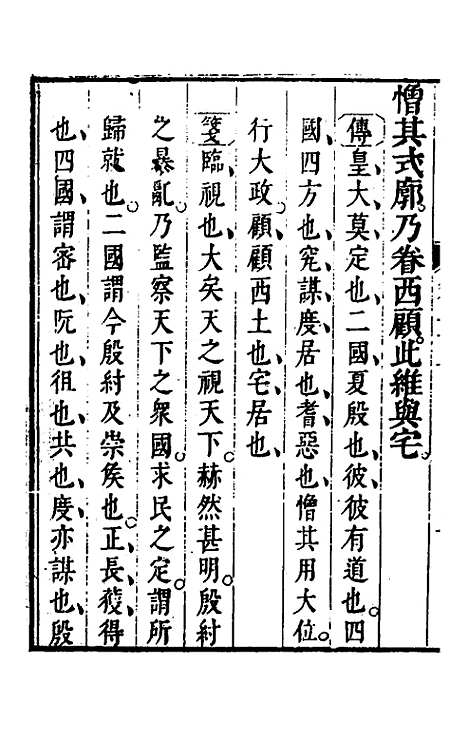 憎其式廓。乃眷西顧。此維與宅。
傳皇、大、莫、定也、二國、夏殷也、彼、彼有道也。四
國、四方也、究、謀、度、居也、耆、惡也、憎其用大位。
行大政、顧、顧西土也、宅、居也、
箋臨、視也、大矣天之視天下。赫然甚明。殷紂
之暴亂。乃監察天下之衆國。求民之定。謂所
歸就也。二國謂今殷紂及崇侯也。正、長、獲、得
也、四國、謂密也、阮也、徂也、共也、度、亦謀也、殷